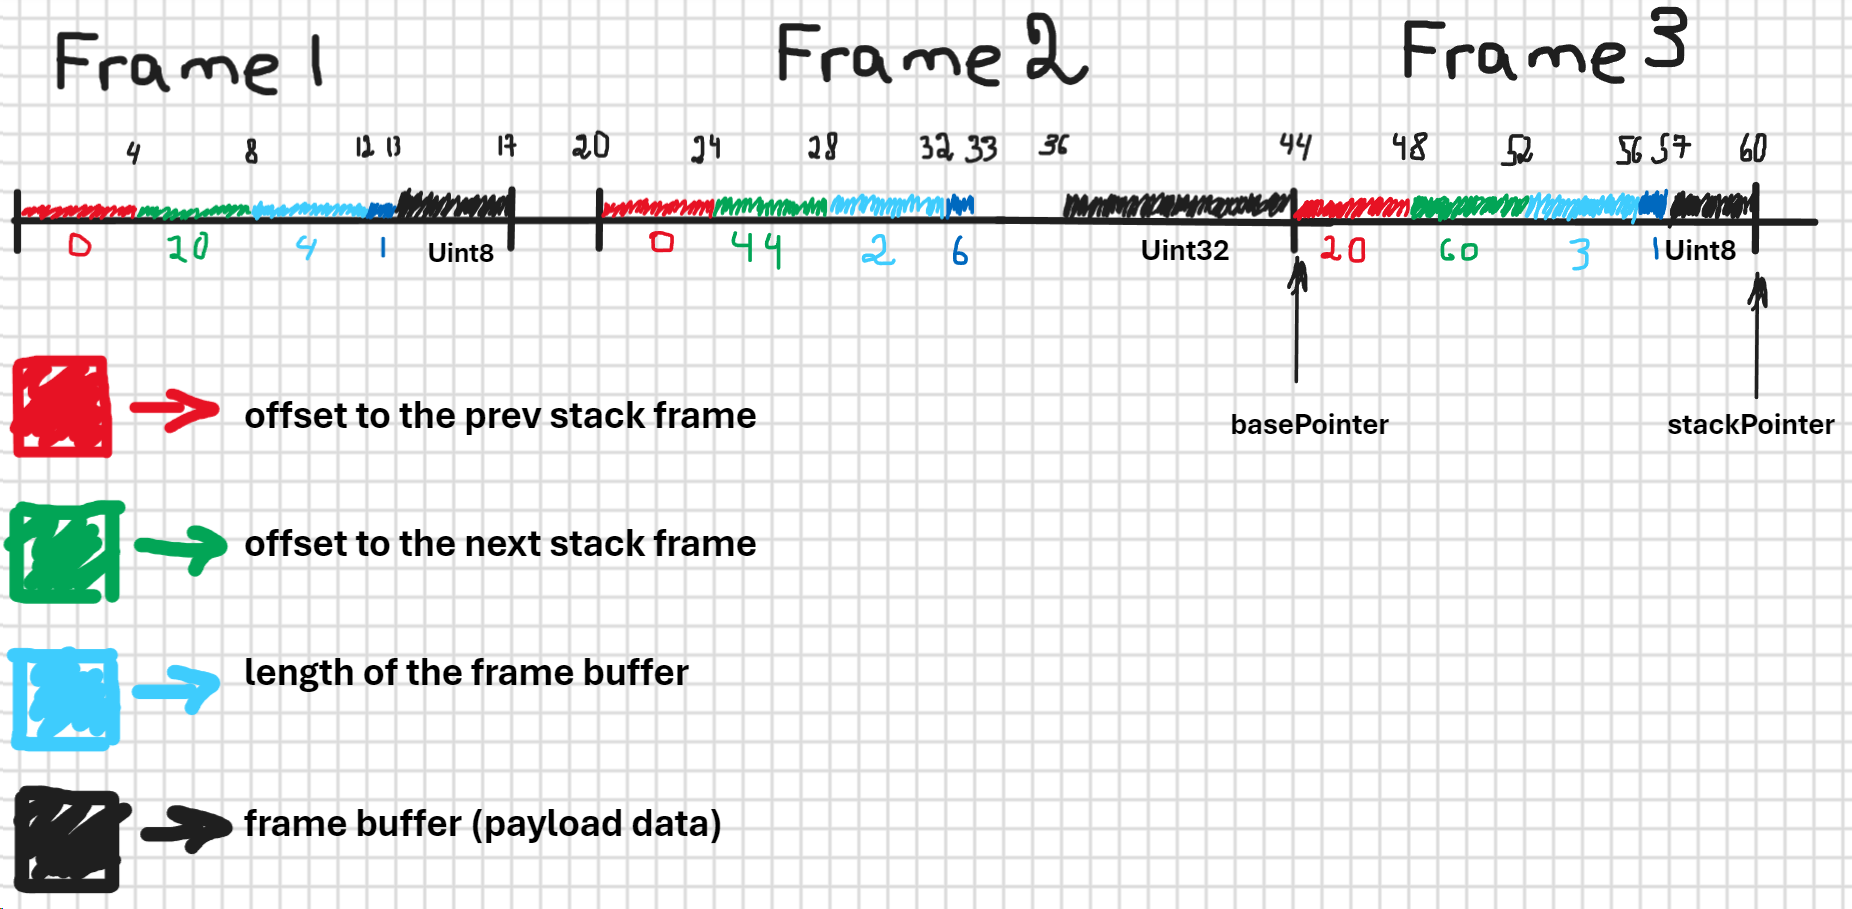 Frame 1 Frame 2 Frame 3
4 8 12 13 17 20 24 28 32 33 36 44 48 52 56 57 60
0 20 4 1 Uint8 0 44 2 6 Uint32 20 60 3 1 Uint8
offset to the prev stack frame
basePointer stackPointer
offset to the next stack frame
length of the frame buffer
frame buffer (payload data)